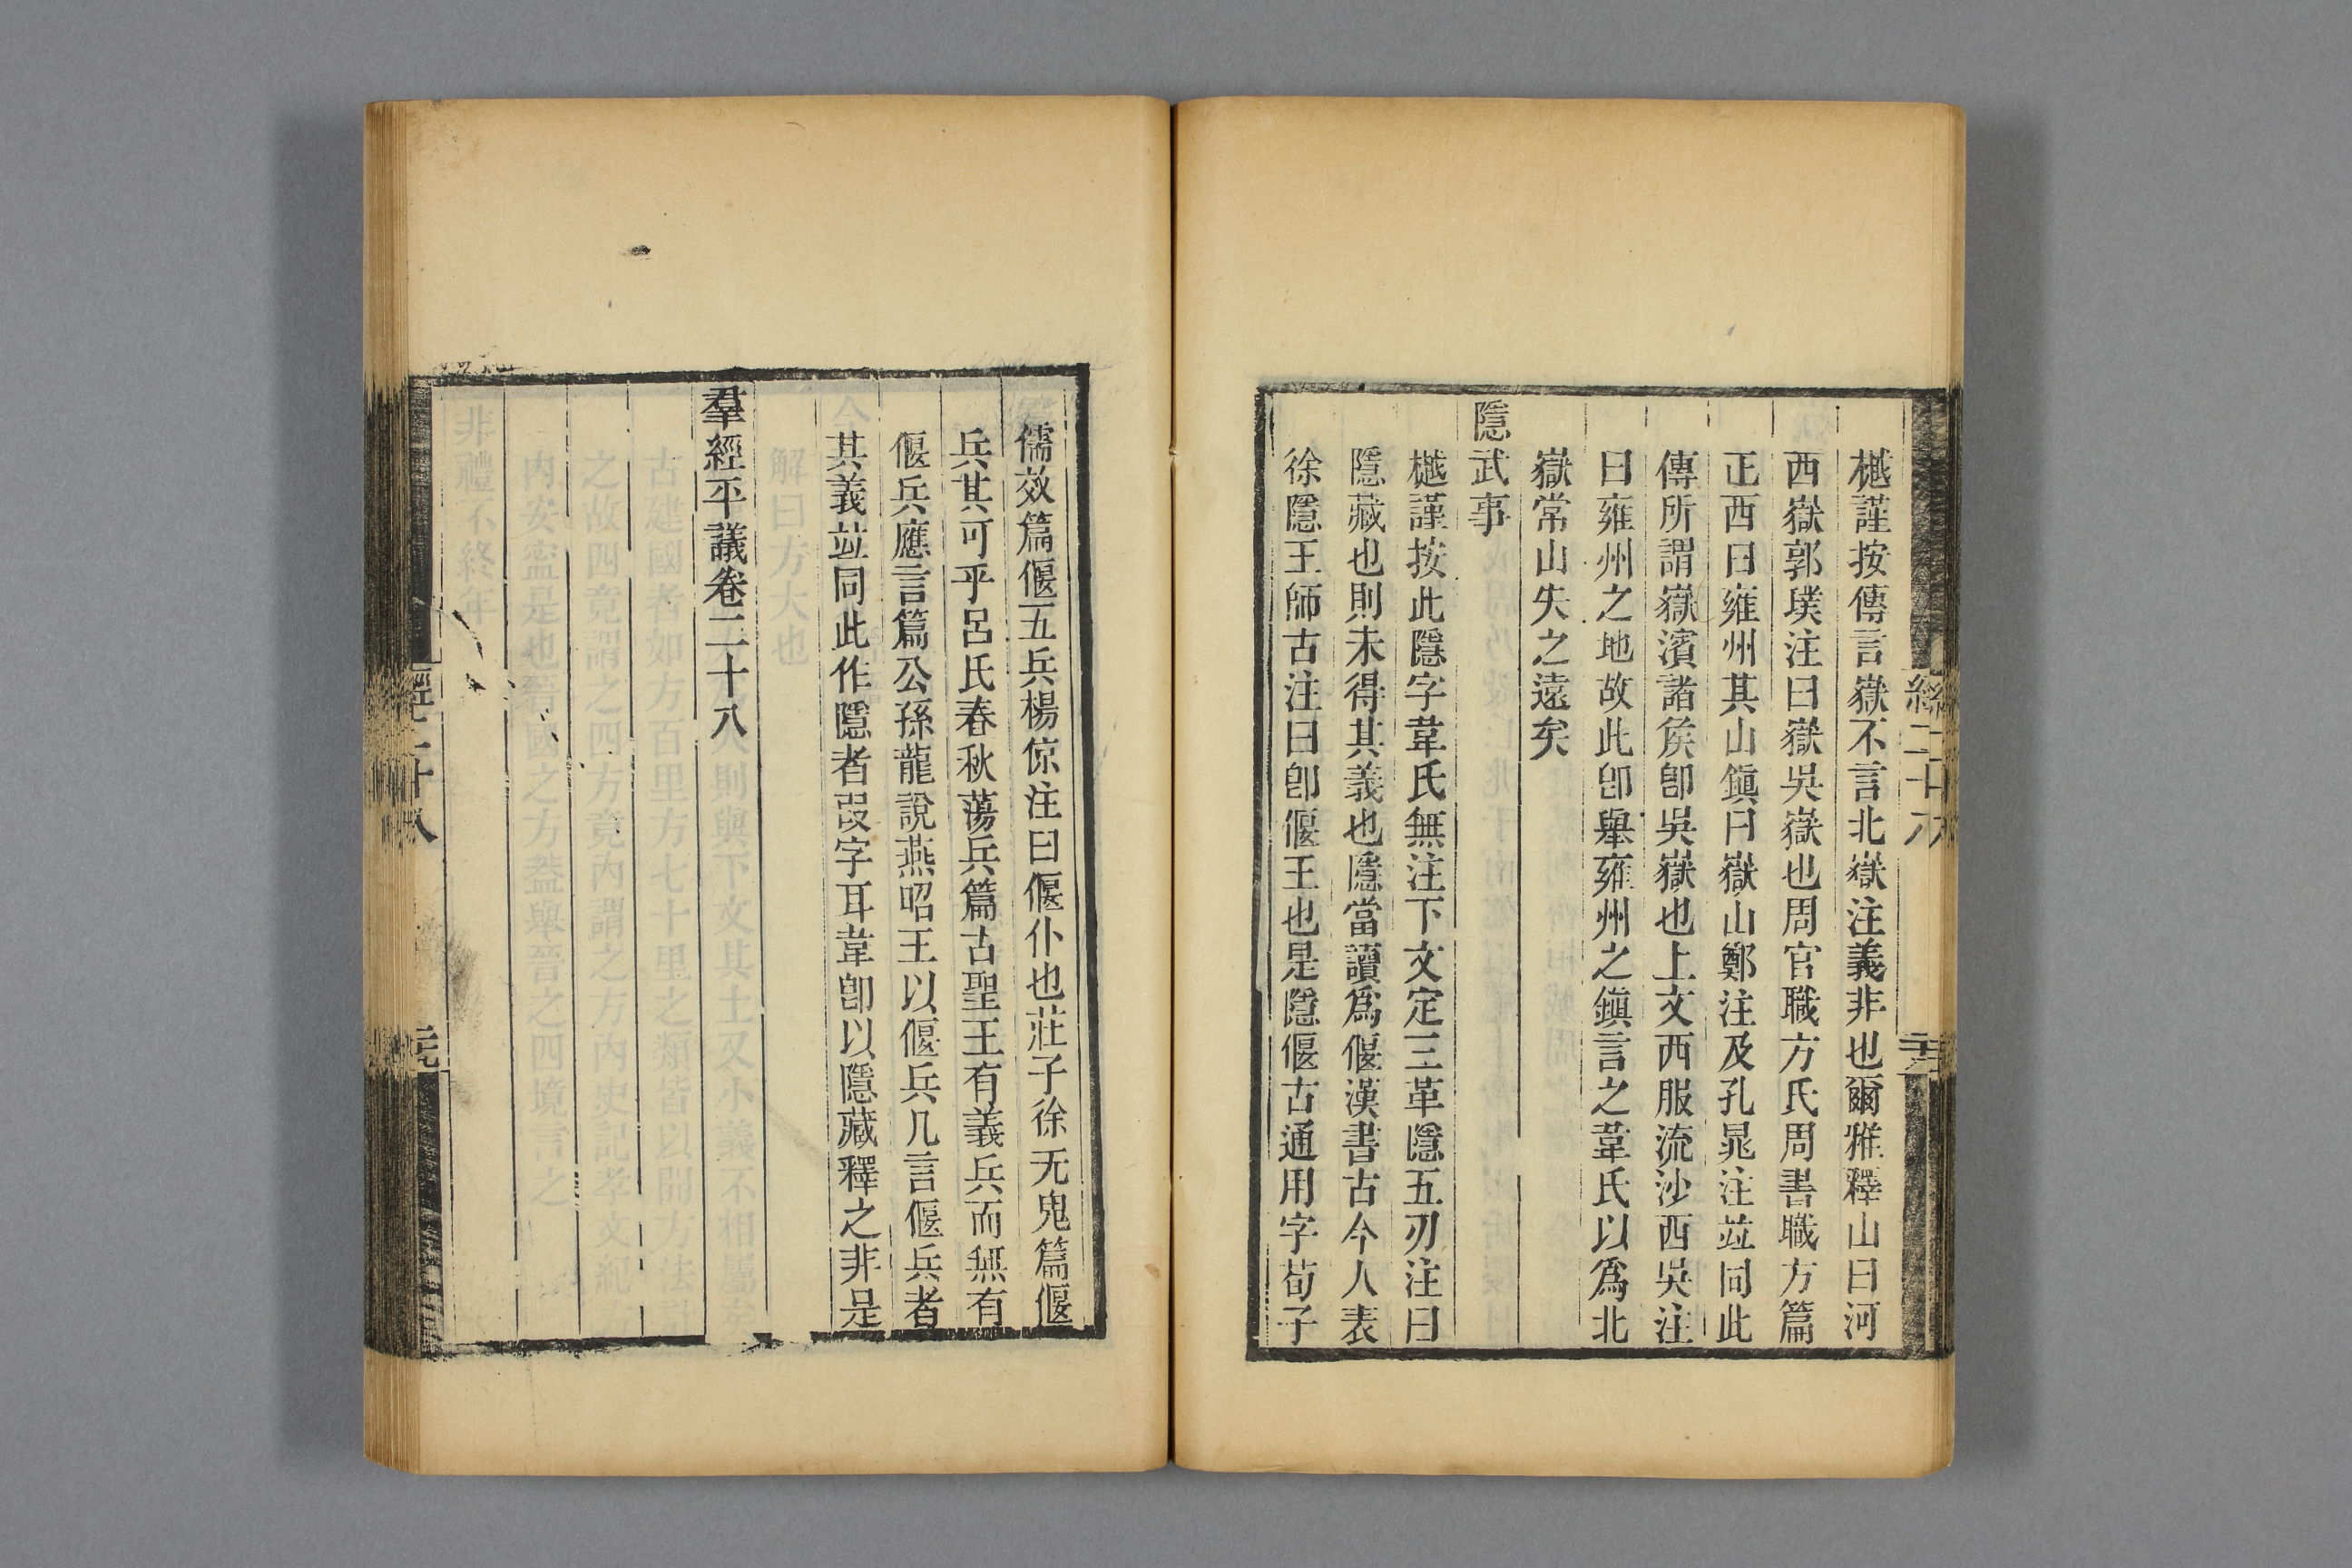 樾謹按傳言嶽不言北嶽注義非也爾雅釋山曰河
西嶽郭璞注曰嶽吳嶽也周官職方氏周書職方篇
正西曰雍州其山鎭曰嶽山鄭注及孔晁注竝同此
傳所謂嶽濱諸矦卽吳嶽也上文西服流沙西吳注
曰雍州之地故此卽舉雍州之鎭言之韋氏以爲北
嶽常山失之遠矣
隱武事
樾謹按此隱字韋氏無注下文定三革隱五刃注曰
隱藏也則未得其義也隱當讀爲偃漢書古今人表
徐隱王師古注曰卽偃王也是隱偃古通用字荀子
儒效篇偃五兵楊倞注曰偃仆也莊子徐无鬼篇偃
兵其可乎呂氏春秋蕩兵篇古聖王有義兵而無有
偃兵應言篇公孫龍說燕昭王以偃兵凡言偃兵者
其義竝同此作隱者叚字耳韋卽以隱藏釋之非是
羣經平議卷二十八
經二十八